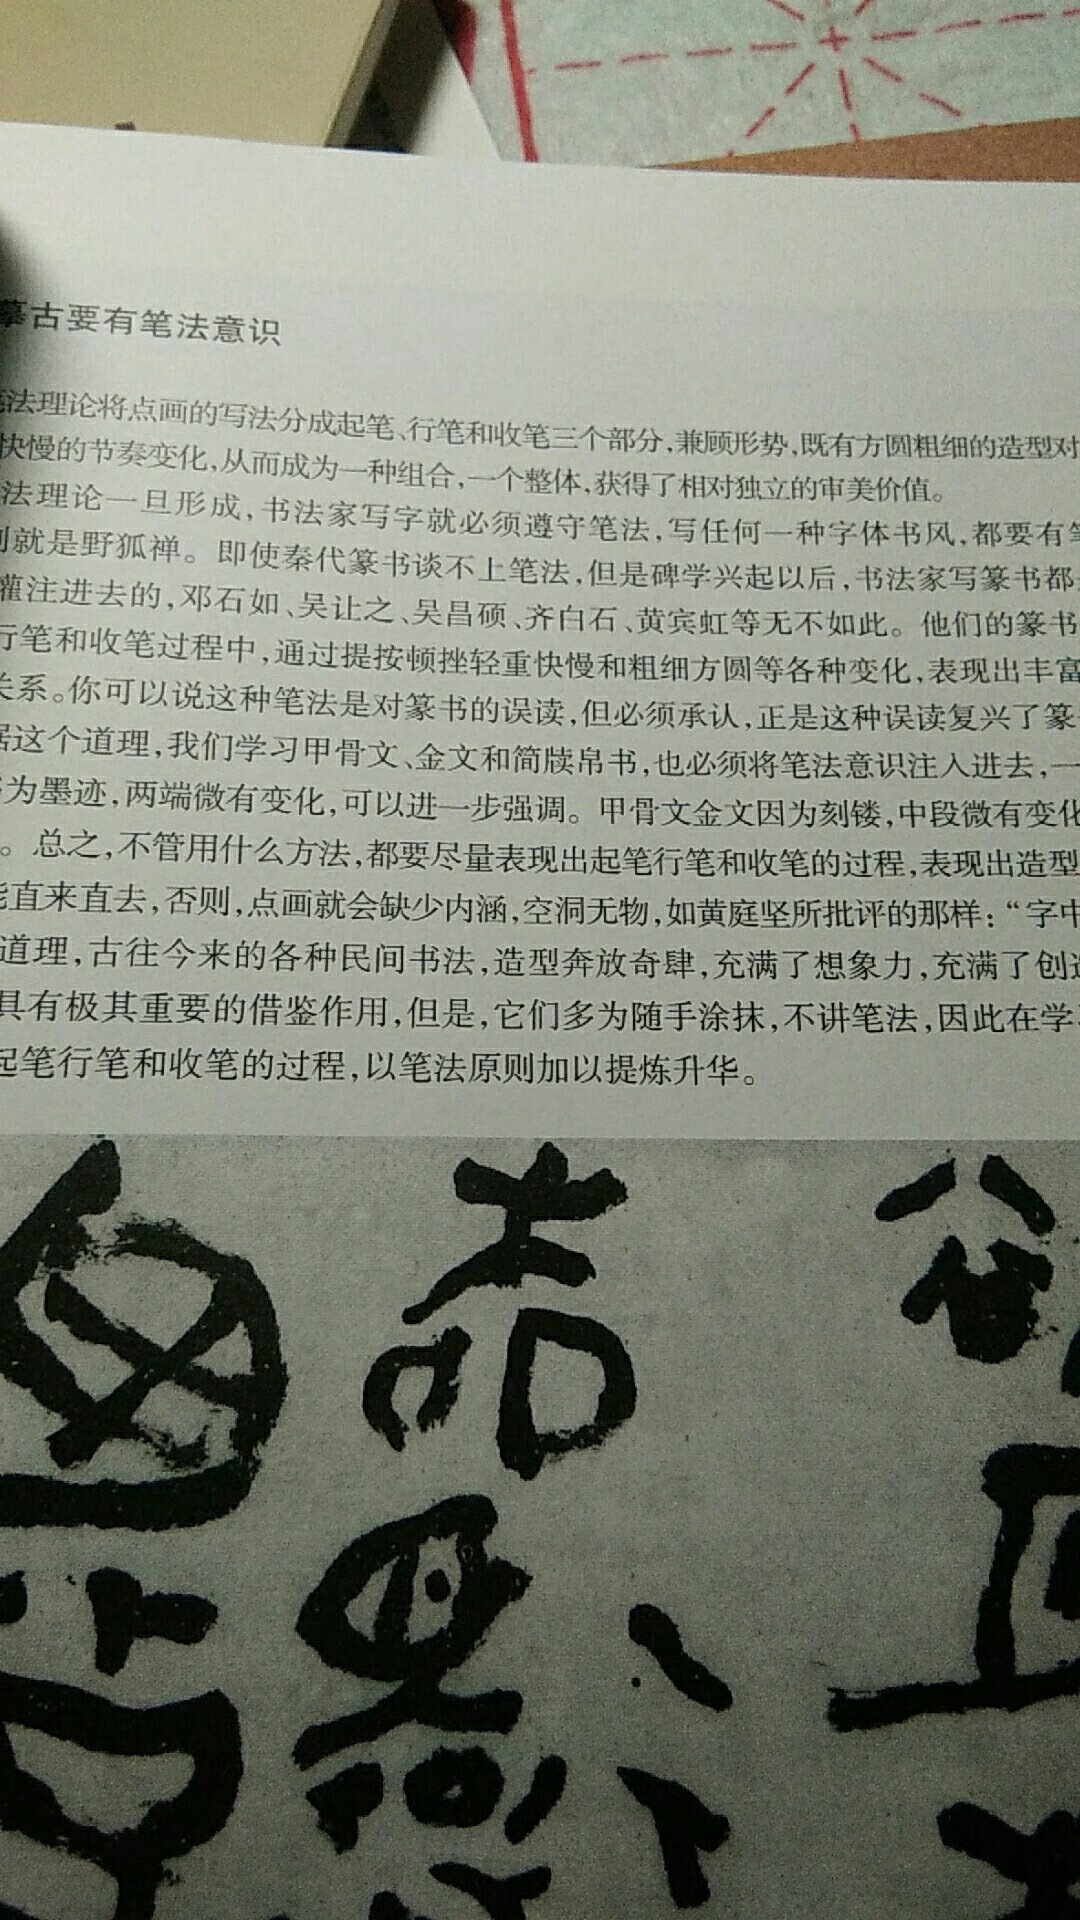 摹古要有笔法意识
法理论将点画的写法分成起笔、行笔和收笔三个部分,兼顾形势,既有方圆粗细的造型对
快慢的节奏变化,从而成为一种组合,一个整体,获得了相对独立的审美价值。
法理论一旦形成,书法家写字就必须遵守笔法,写任何一种字体书风,都要有
就是野狐禅。即使秦代篆书谈不上笔法,但是碑学兴起以后,书法家写篆书都
灌注进去的,邓石如、吴让之、吴昌硕、齐白石、黄宾虹等无不如此。他们的篆书
行笔和收笔过程中,通过提按顿挫轻重快慢和粗细方圆等各种变化,表现出丰富
关系。你可以说这种笔法是对篆书的误读,但必须承认,正是这种误读复兴了篆
这个道理,我们学习甲骨文、金文和简牍帛书,也必须将笔法意识注入进去,一
为墨迹,两端微有变化,可以进一步强调。甲骨文金文因为刻镂,中段微有变化
。总之,不管用什么方法,都要尽量表现出起笔行笔和收笔的过程,表现出造型
直来直去,否则,点画就会缺少内涵,空洞无物,如黄庭坚所批评的那样:“字中
道理,古往今来的各种民间书法,造型奔放奇肆,充满了想象力,充满了创造
具有极其重要的借鉴作用,但是,它们多为随手涂抹,不讲笔法,因此在学
起笔行笔和收笔的过程,以笔法原则加以提炼升华。